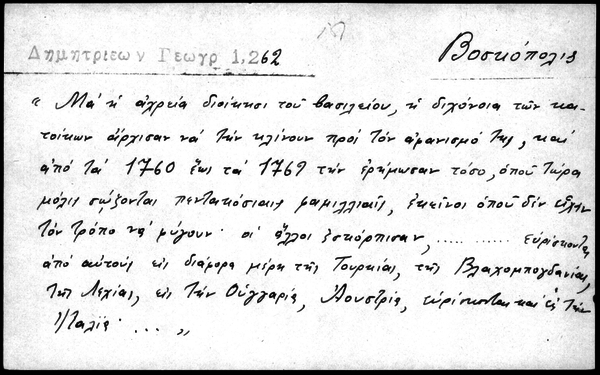 Δημητριεων Γεωγρ 1,262
Βοσκόπολις
" Μὰ ἡ ἀχρεία διοίκησι τοῦ βασιλείου, ἡ διχόνοια τῶν κα-
τοίκων ἄρχισαν νά τὴν κλίνουν πρὸς τὸν ἀφανισμό της, καὶ
ἀπὸ τὰ 1760 ἕως τὰ 1769 τὴν ἐρήμωσαν τόσο, ὁποῦ τώρα
μόλις σῴζονται πεντακόσιαις φαμιλλίαις, ἐκεῖνοι ὁποῦ δὲν εἶχαν
τὸν τρόπο νὰ φύγουν· οἱ ἄλλοι ἐσκόρπισαν, ..... ....... εὑρίσκονται
ἀπὸ αὐτοὺς εἰς διάφορα μέρη τῆς Τουρκίας, τῆς Βλαχομπογδανίας,
τῆς Λεχίας, εἰς τὴν Οὑγγαρία, Ἀουστρία, εὑρίσκονται καὶ εἰς τὴν
Ἰταλία. ... "